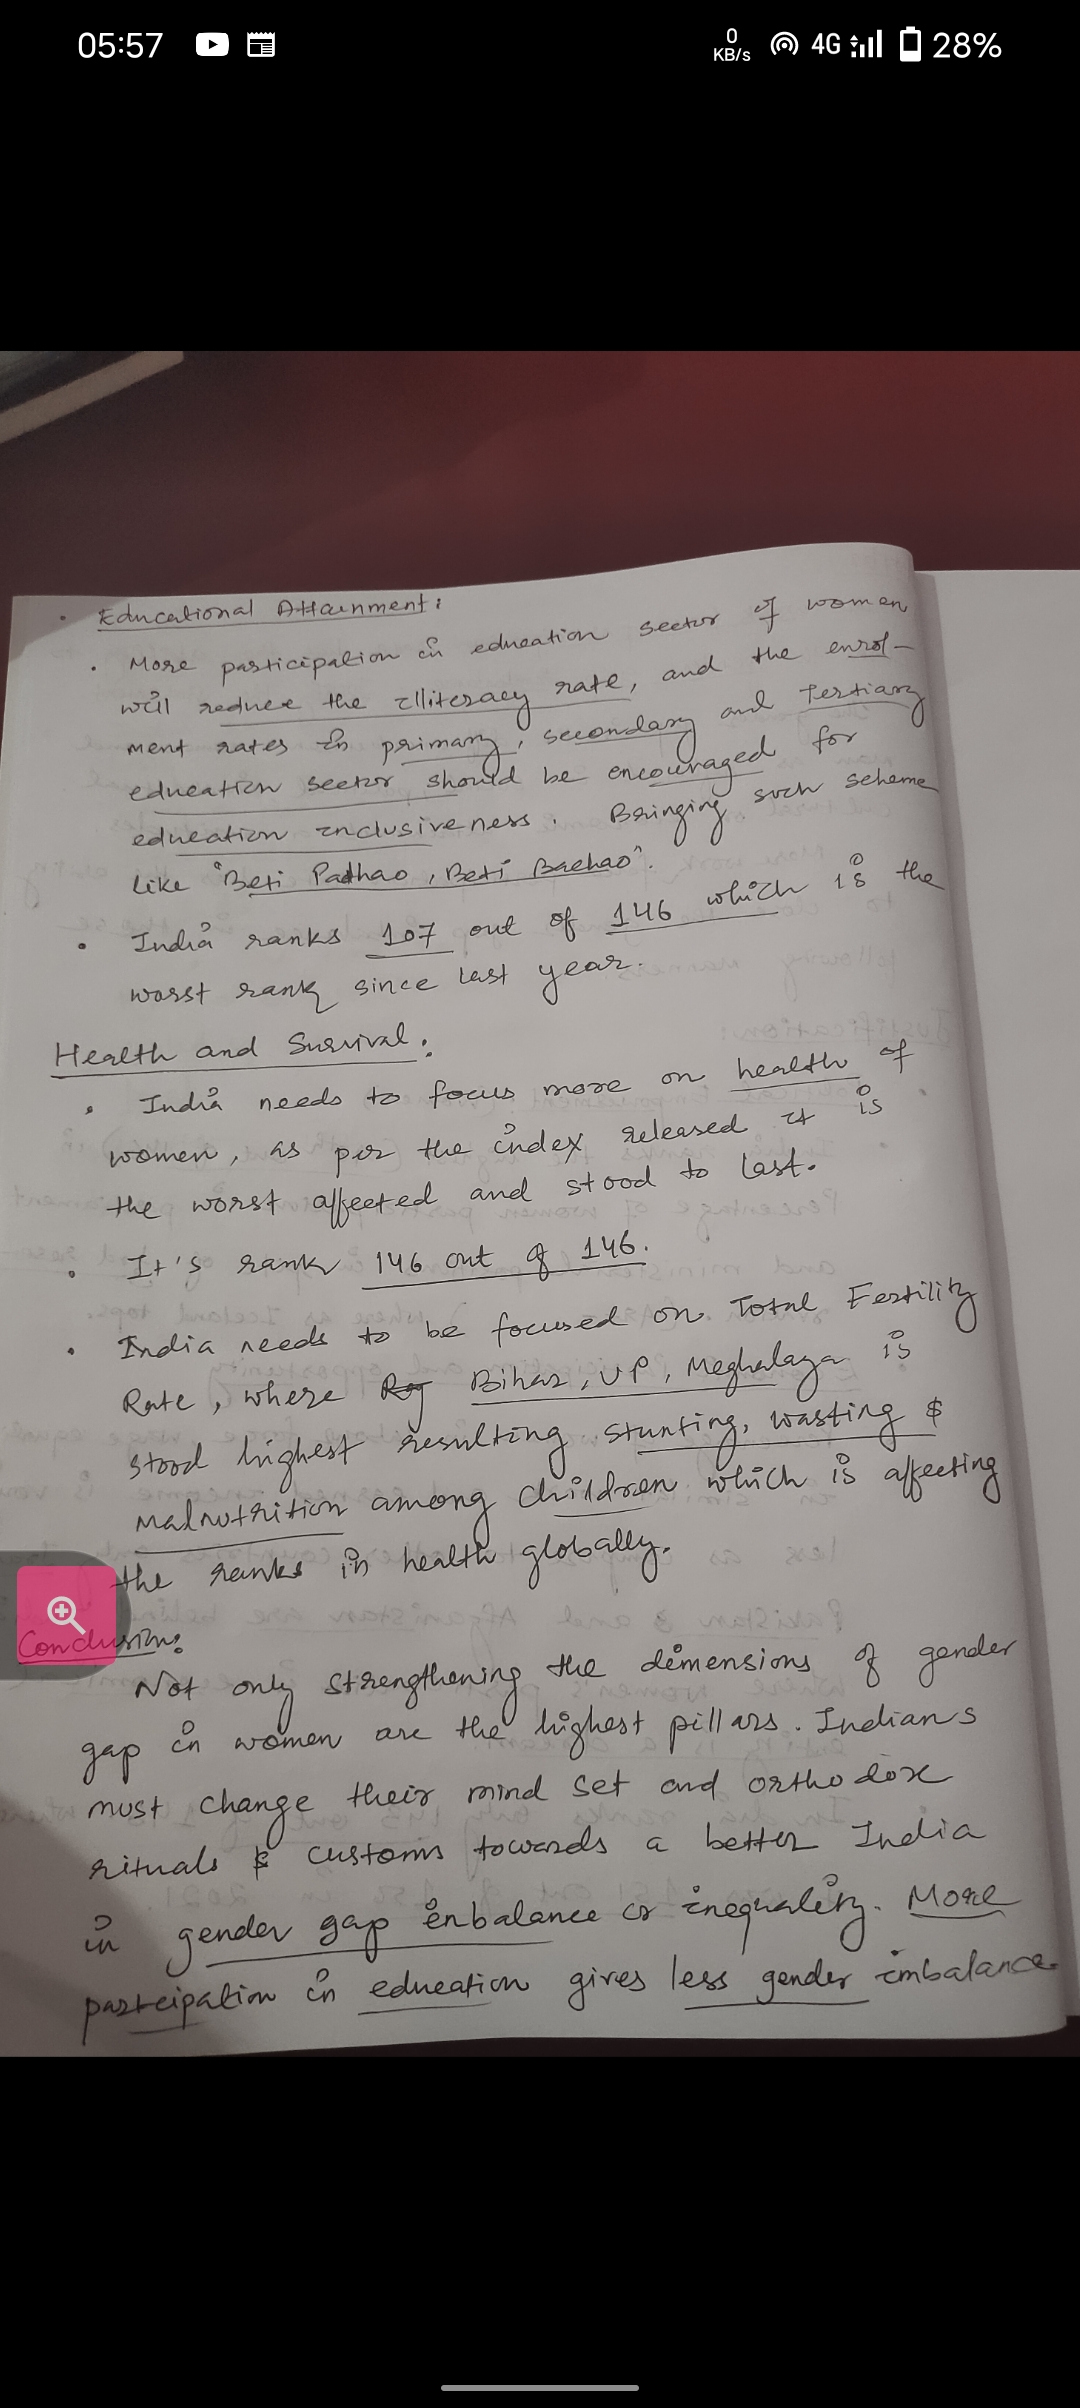 05:57
0 KB/s 4G 28%
Educational Attainment:
• More participation in education sector of women
will reduce the illiteracy rate, and the enrol-
ment rates in primary, secondary and Tertiary
education sector should be encouraged for
education inclusiveness. Bringing such scheme
like "Beti Padhao, Beti Bachao".
• India ranks 107 out of 146 which is the
worst rank since last year.
Health and Survival:
• India needs to focus more on health of
women, as per the index released it is
the worst affected and stood to last.
• It's rank 146 out of 146.
• India needs to be focused on Total Fertility
Rate, where Bihar, UP, Meghalaya is
stood highest resulting stunting, wasting &
malnutrition among children which is affecting
the ranks in health globally.
Conclusion:
Not only strengthening the dimensions of gender
gap in women are the highest pillars. Indians
must change their mind set and orthodox
rituals & customs towards a better India
in gender gap enbalance or inequality. More
participation in education gives less gender imbalance.